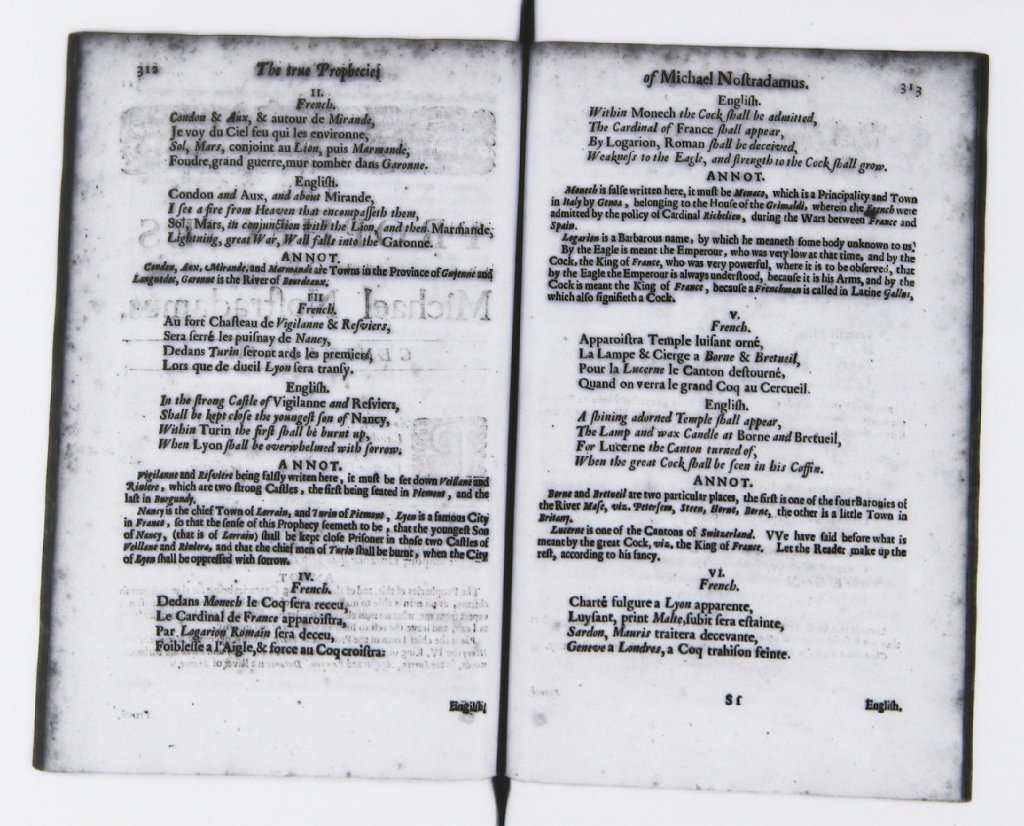 312
The true Prophecies
II.
French.
Condon & Aux, & autour de Mirande,
Je voy du Ciel feu qui les environne,
Sol, Mars, conjoint au Lion, puis Marmande,
Foudre, grand guerre, mur tomber dans Garonne.
English.
Condon and Aux, and about Mirande,
I see a fire from Heaven that encompasseth them,
Sol, Mars, in conjunction with the Lion, and then Marmande,
Lightning, great War, Wall falls into the Garonne.
ANNOT.
Condon, Aux, Mirande, and Marmande are Towns in the Province of Guyenne and
Languedoc, Garonne is the River of Bourdeaux.
III
French.
Au fort Chasteau de Vigilanne & Resviers,
Sera serré les puisnay de Nancy,
Dedans Turin seront ards les premiers,
Lors que de dueil Lyon sera transy.
English.
In the strong Castle of Vigilanne and Resviers,
Shall be kept close the youngest son of Nancy,
Within Turin the first shall be burnt up,
When Lyon shall be overwhelmed with sorrow.
ANNOT.
Vigilanne and Resviere being falsly writen here, it must be set down Veillane and
Riviere, which are two strong Castles, the first being seated in Piemont, and the
last in Burgundy.
Nancy is the chief Town of Lorrain, and Turin of Piemont, Lyon is a famous City
in France, so that the sense of this Prophecy seemeth to be, that the youngest Son
of Nancy, (that is of Lorrain) shall be kept close Prisoner in those two Castles of
Veillane and Riviera, and that the chief men of Turin shall be burnt, when the City
of Lyon shall be oppressed with sorrow.
IV.
French.
Dedans Monech le Coq sera receu,
Le Cardinal de France apparoistra,
Par Logarion Romain sera deceu,
Foiblesse a l'Aigle, & force au Coq croistra:
English
of Michael Nostradamus.
313
English.
Within Monech the Cock shall be admitted,
The Cardinal of France shall appear,
By Logarion, Roman shall be deceived,
Weakness to the Eagle, and strength to the Cock shall grow.
ANNOT.
Monech is false written here, it must be Monaco, which is a Principality and Town
in Italy by Genoa, belonging to the House of the Grimaldi, wherein the French were
admitted by the policy of Cardinal Richelieu, during the Wars between France and
Spain.
Logarion is a Barbarous name, by which he meaneth some body unknown to us,
By the Eagle is meant the Emperour, who was very low at that time, and by the
Cock, the King of France, who was very powerful, where it is to be observed, that
by the Eagle the Emperour is always understood, because it is his Arms, and by the
Cock is meant the King of France, because a Frenchman is called in Latine Gallus,
which also signifieth a Cock.
V.
French.
Apparoistra Temple luisant orné,
La Lampe & Cierge a Borne & Bretueil,
Pour la Lucerne le Canton destourné,
Quand on verra le grand Coq au Cercueil.
English.
A shining adorned Temple shall appear,
The Lamp and wax Candle at Borne and Bretueil,
For Lucerne the Canton turned of,
When the great Cock shall be seen in his Coffin.
ANNOT.
Borne and Bretueil are two particular places, the first is one of the four Baronies of
the River Mase, viz. Petersem, Steen, Horne, Borne, the other is a little Town in
Britany.
Lucerne is one of the Cantons of Switzerland. VVe have said before what is
meant by the great Cock, viz. the King of France. Let the Reader make up the
rest, according to his fancy.
VI.
French.
Charté fulgure a Lyon apparente,
Luysant, print Malte, subit sera estainte,
Sardon, Mauris traitera decevante,
Geneve a Londres, a Coq trahison feinte.
Sf
English.